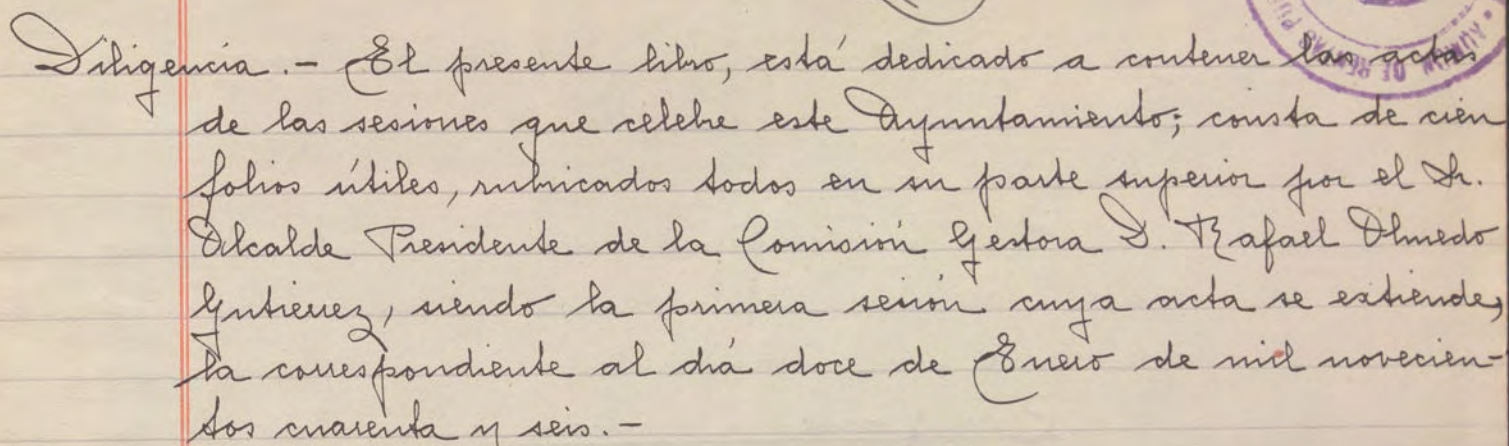 Diligencia.- El presente libro, está dedicado a contener las actas
de las sesiones que celebre este Ayuntamiento; consta de cien
folios útiles, rubricados todos en su parte superior por el Sr.
Alcalde Presidente de la Comisión Gestora D. Rafael Olmedo
Gutierrez, siendo la primera sesión cuya acta se extiende,
la correspondiente al dia doce de Enero de mil novecien-
tos cuarenta y seis.-